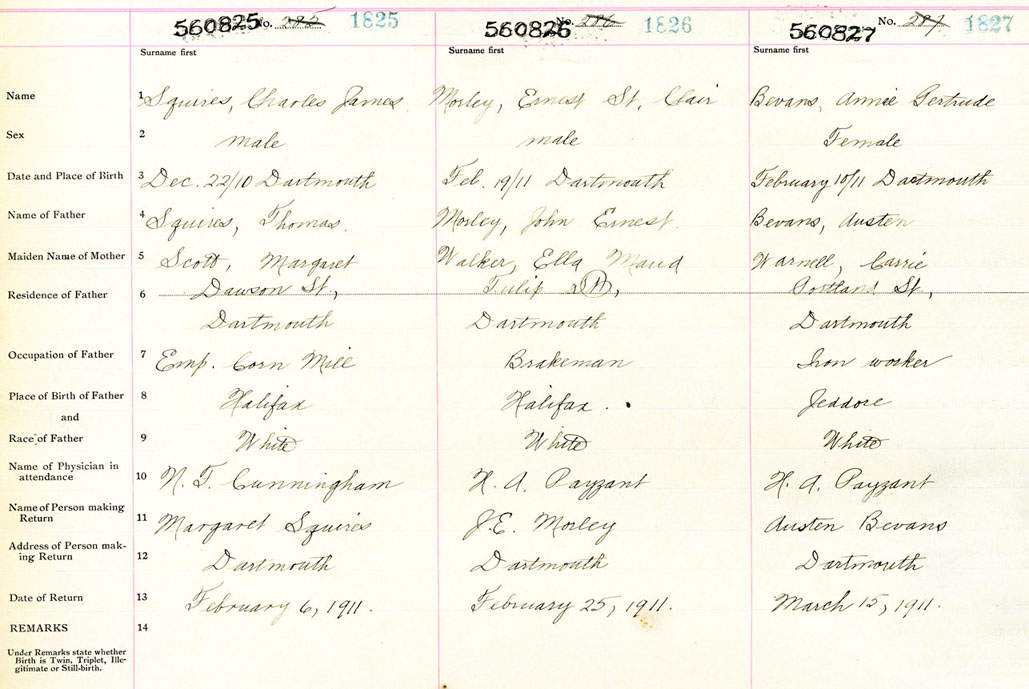 560825 No. 285 1825 560826 No. 286 1826 560827 No. 287 1827
Surname first Surname first Surname first
Name 1 Squires, Charles James Morley, Ernest St. Clair Bevans, Annie Gertrude
Sex 2 male male Female
Date and Place of Birth 3 Dec. 22/10 Dartmouth Feb. 19/11 Dartmouth February 10/11 Dartmouth
Name of Father 4 Squires, Thomas. Morley, John Ernest. Bevans, Austen
Maiden Name of Mother 5 Scott, Margaret Walker, Ella Maud Warnell, Carrie
Residence of Father 6 Dawson St, Tulip St, Portland St,
Dartmouth Dartmouth Dartmouth
Occupation of Father 7 Emp. Corn Mill Brakeman Iron worker
Place of Birth of Father 8 Halifax Halifax. Jeddore
and
Race of Father 9 White White White
Name of Physician in
attendance 10 N. F. Cunningham H. A. Payzant H. A. Payzant
Name of Person making
Return 11 Margaret Squires J.E. Morley Austen Bevans
Address of Person mak-
ing Return 12 Dartmouth Dartmouth Dartmouth
Date of Return 13 February 6, 1911. February 25, 1911. March 15, 1911.
REMARKS 14
Under Remarks state whether
Birth is Twin, Triplet, Ille-
gitimate or Still-birth.